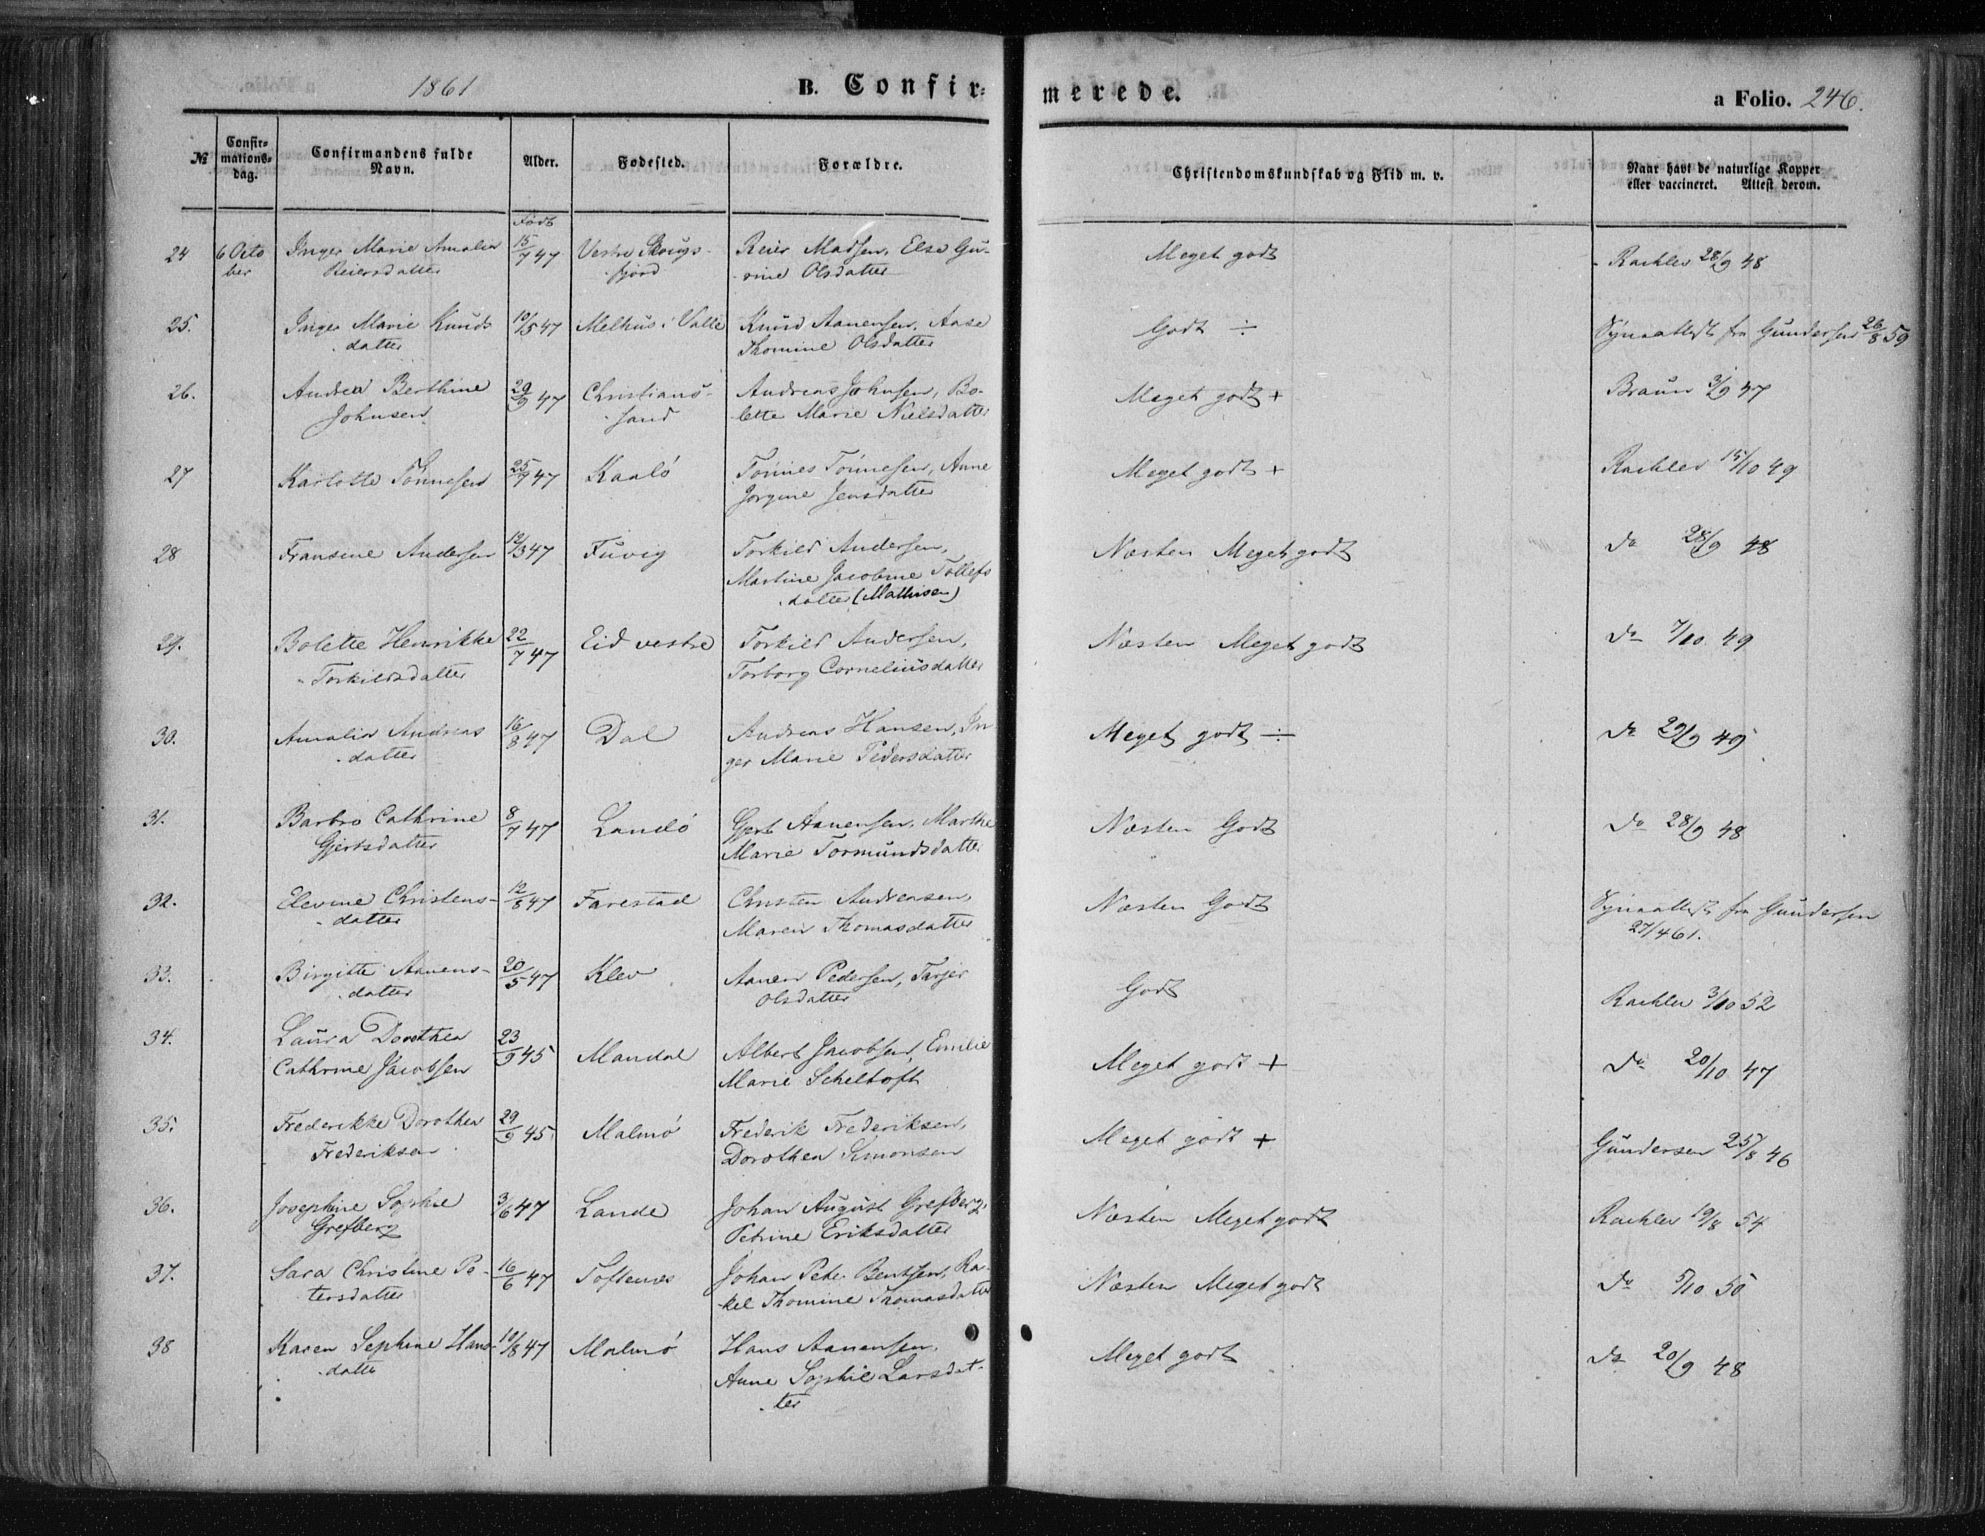 1861 B. Confir= merede. a Folio. 246.
№ Confir= mations= dag. Confirmandens fulde Navn. Alder. Fødested. Forældre. Christendomskundskab og Flid m. v. Naar havt de naturlige Kopper eller vaccineret. Attest derom.
Født
24 6 Octo Inger Marie Amalia 15/7 47 Vestre Skougs- Reier Madsen, Else Gu- Meget godt Rachlev 28/9 48
ber Reiersdatter fjord rine Olsdatter
25. Inger Marie Knuds 10/5 47 Melhus i Valle Knud Aanensen, Aase Godt ÷ Synaattest fra Gundersen 26/8 59
datter Thomine Olsdatter
26. Andrea Berthine 29/9 47 Christians- Andreas Johnsen, Bo- Meget godt + Braun 3/9 47
Johnsen sand lette Marie Nielsdatter
27 Karlotte Tønnesen 25/9 47 Kaalø Tønnes Tønnesen, Anne Meget godt + Rachlev 15/10 49
Jorgine Jensdatter
28 Fransine Andersen 12/3 47 Fuvig Torkild Andersen, Næsten Meget godt Do 28/9 48
Martine Jacobine Tollefs
datter (Mathisen)
29. Bolette Henrikke 22/7 47 Eid vestre Torkild Andersen, Næsten Meget godt Do 7/10 49
Torkildsdatter Torborg Corneliusdatter
30. Amalia Andreas 16/8 47 Dal Andreas Hansen, In Meget godt ÷ Do 29/9 49
datter ger Marie Pedersdatter
31. Barbro Cathrine 8/7 47 Landø Gjert Aanensen, Marthe Næsten Godt Do 28/9 48
Gjertsdatter Marie Tormundsdatter
32. Elevine Christens- 12/8 47 Farestad Christen Andreasen, Næsten Godt Synaattest fra Gundersen
datter Maren Thomasdatter 27/4 61.
33. Birgitte Aanens- 20/5 47 Klev Aanen Pedersen, Tarjer Godt Rachlev 3/10 52
datter Olsdatter
34. Laura Dorothea 23/9 45 Mandal Albert Jacobsen, Emilie Meget godt + Do 20/10 47
Cathrine Jacobsen Marie Scheltoft
35. Frederikke Dorothea 29/9 45 Malmø Frederik Frederiksen, Meget godt + Gundersen 25/8 46
Frederiksen Dorothea Simonsen
36. Josephine Sophie 3/6 47 Lande Johan August Grefberg, Næsten Meget godt Rachlev 19/8 54
Grefberg Petrine Eriksdatter
37. Sara Christine Pe- 16/6 47 Toftenes Johan Peter Bentsen, Ra- Næsten Meget godt Do 5/10 50
tersdatter kel Thomine Thomasdatter
38 Karen Sephine Hans- 10/8 47 Malmø Hans Aanensen, Meget godt Do 20/9 48
datter Anne Sophie Larsdat-
ter